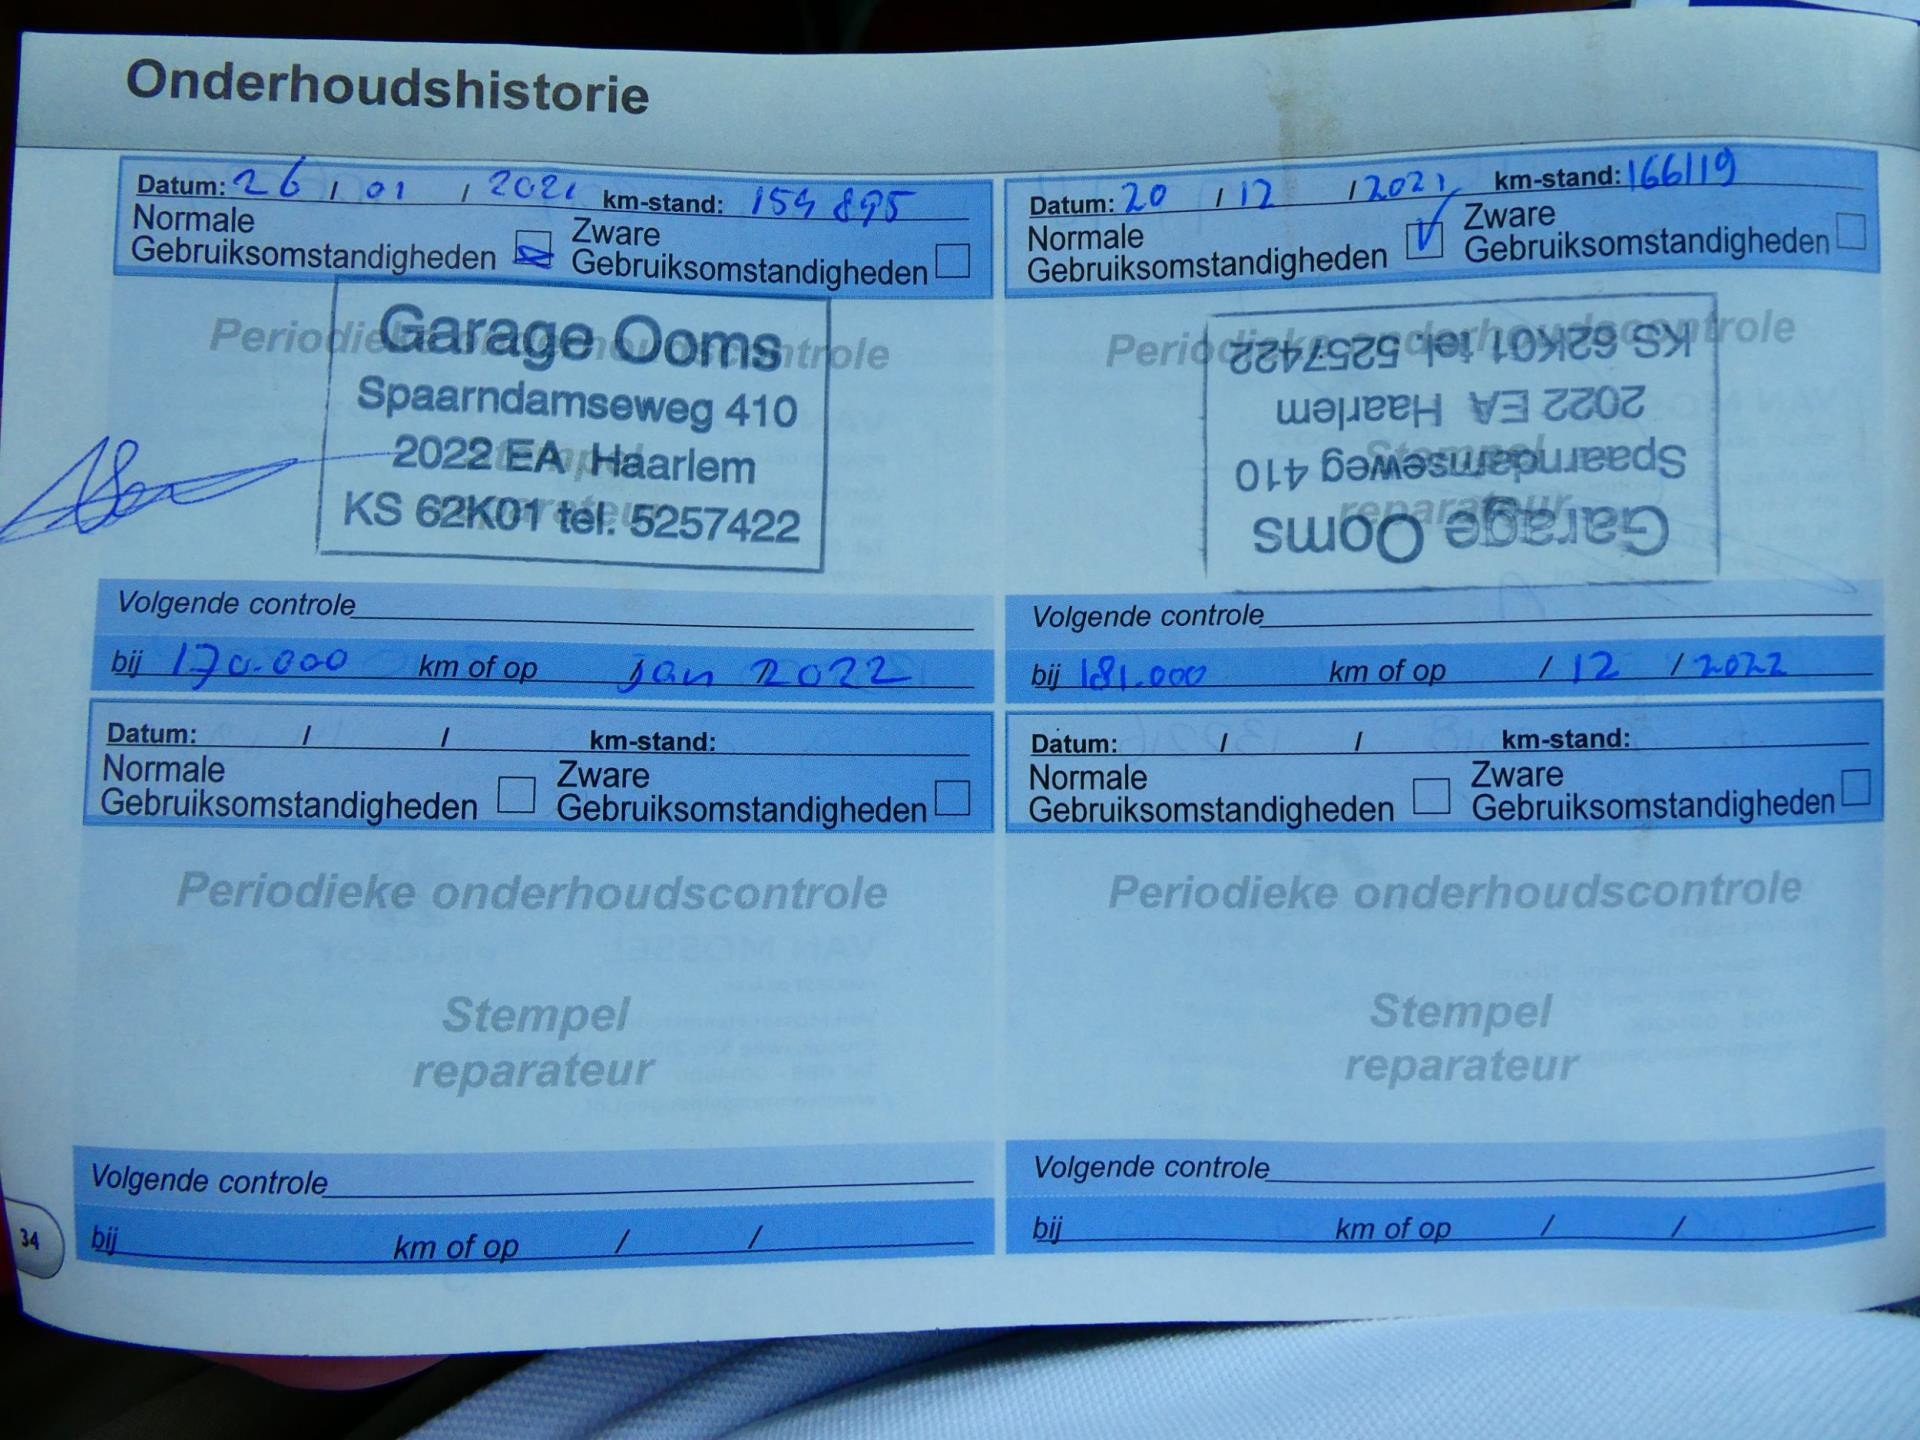 Onderhoudshistorie
Datum: 26 / 01 / 2021 km-stand: 154 895
Normale
Gebruiksomstandigheden
Zware
Gebruiksomstandigheden
Periodieke onderhoudscontrole
Stempel
reparateur
Garage Ooms
Spaarndamseweg 410
2022 EA Haarlem
KS 62K01 tel. 5257422
Volgende controle
bij 170.000 km of op jan 2022
Datum: 20 / 12 / 2021 km-stand: 166119
Normale
Gebruiksomstandigheden
Zware
Gebruiksomstandigheden
Periodieke onderhoudscontrole
Stempel
reparateur
Garage Ooms
Spaarndamseweg 410
2022 EA Haarlem
KS 62K01 tel. 5257422
Volgende controle
bij 181.000 km of op / 12 / 2022
Datum: / / km-stand:
Normale
Gebruiksomstandigheden
Zware
Gebruiksomstandigheden
Periodieke onderhoudscontrole
Stempel
reparateur
Volgende controle
bij km of op / /
Datum: / / km-stand:
Normale
Gebruiksomstandigheden
Zware
Gebruiksomstandigheden
Periodieke onderhoudscontrole
Stempel
reparateur
Volgende controle
bij km of op / /
34